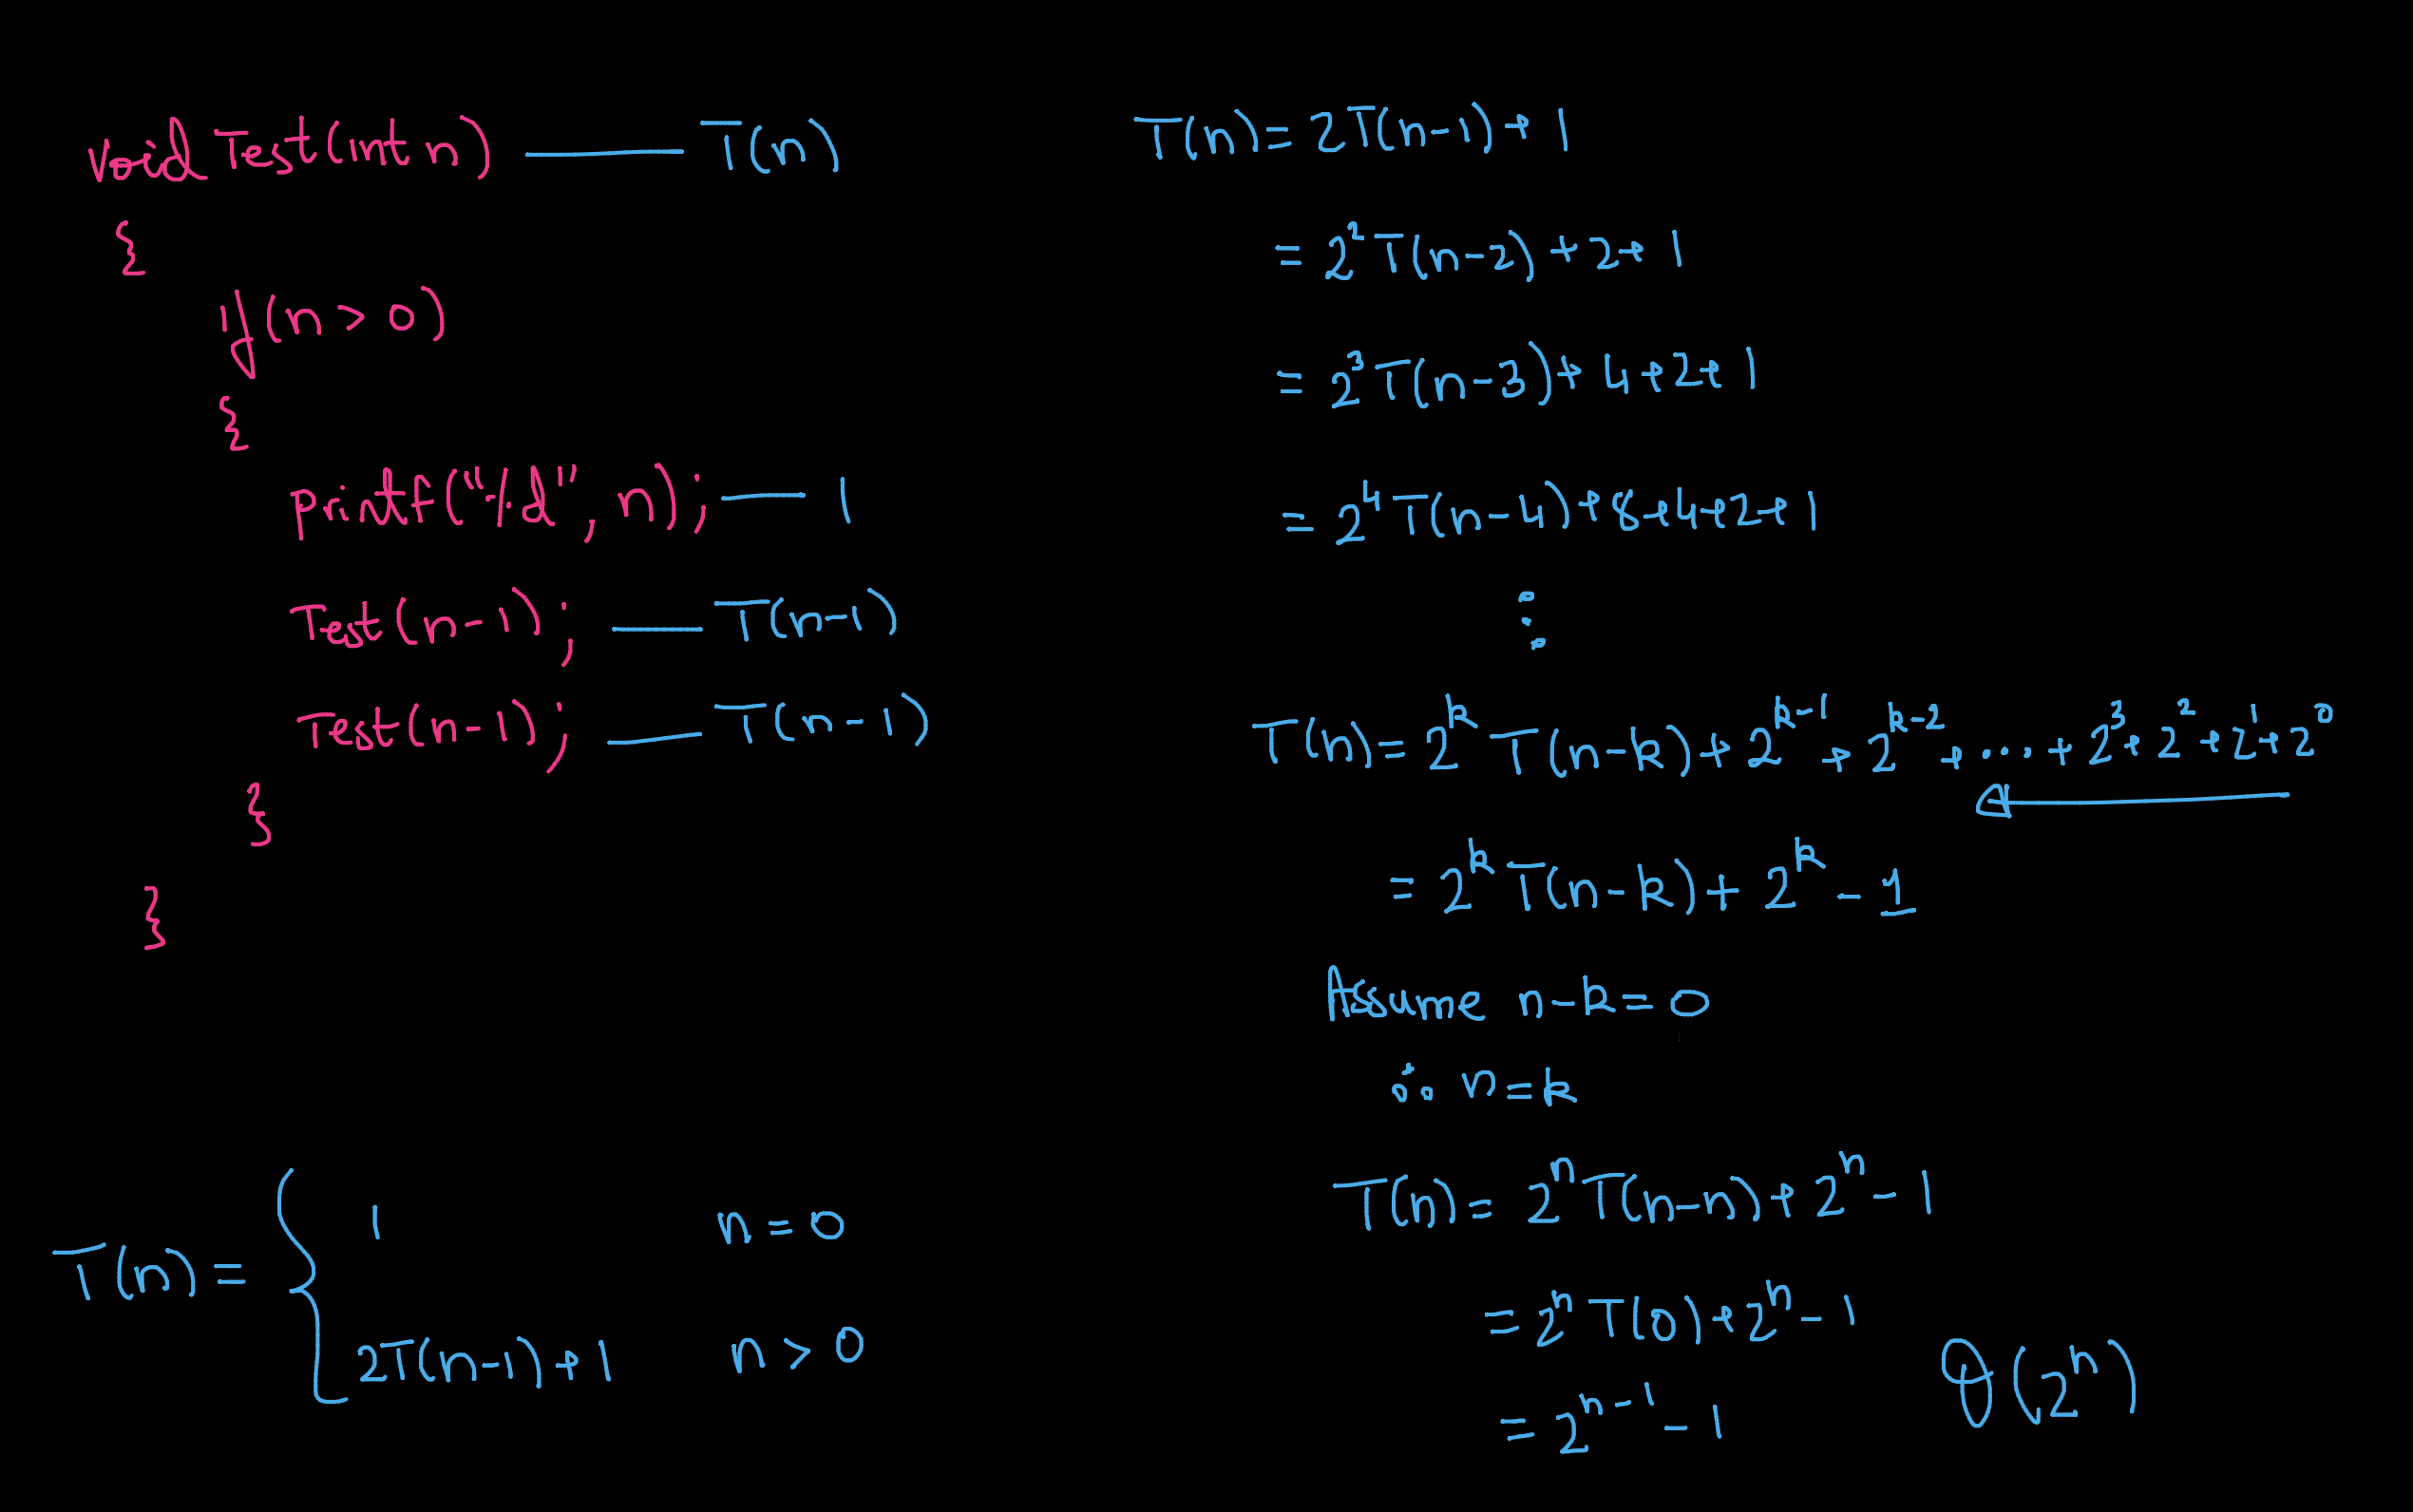 void Test(int n) —— T(n)
{
if(n > 0)
{
printf("%d", n); — 1
Test(n-1); — T(n-1)
Test(n-1); — T(n-1)
}
}
T(n) = {
1 n = 0
2T(n-1) + 1 n > 0
T(n) = 2T(n-1) + 1
= 2² T(n-2) + 2 + 1
= 2³ T(n-3) + 4 + 2 + 1
= 2⁴ T(n-4) + 8 + 4 + 2 + 1
⋮
T(n) = 2^k T(n-k) + 2^(k-1) + 2^(k-2) + ... + 2³ + 2² + 2¹ + 2⁰
= 2^k T(n-k) + 2^k - 1
Assume n-k = 0
∴ n = k
T(n) = 2^n T(n-n) + 2^n - 1
= 2^n T(0) + 2^n - 1
= 2^(n-1) - 1
θ(2^n)